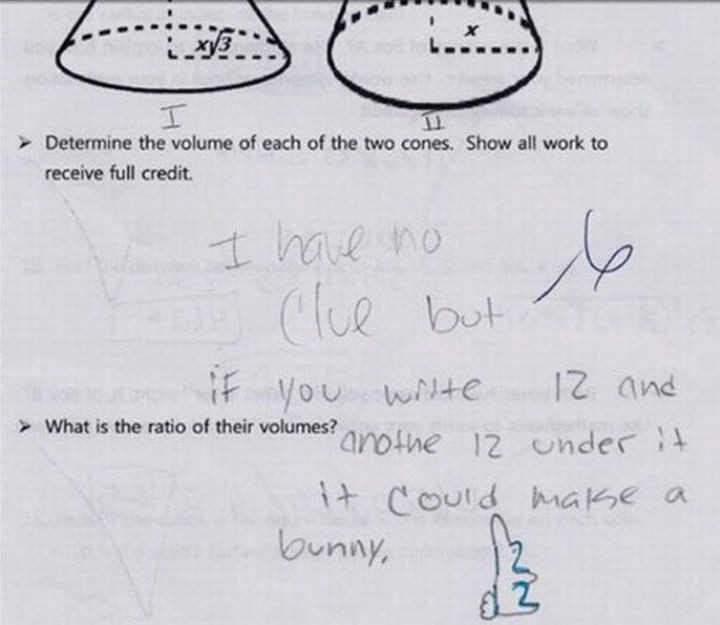 x√3
x
I
II
➤ Determine the volume of each of the two cones. Show all work to
receive full credit.
I have no
Clue but
-6
if you write 12 and
➤ What is the ratio of their volumes?
anothe 12 under it
it could make a
bunny.
12
12